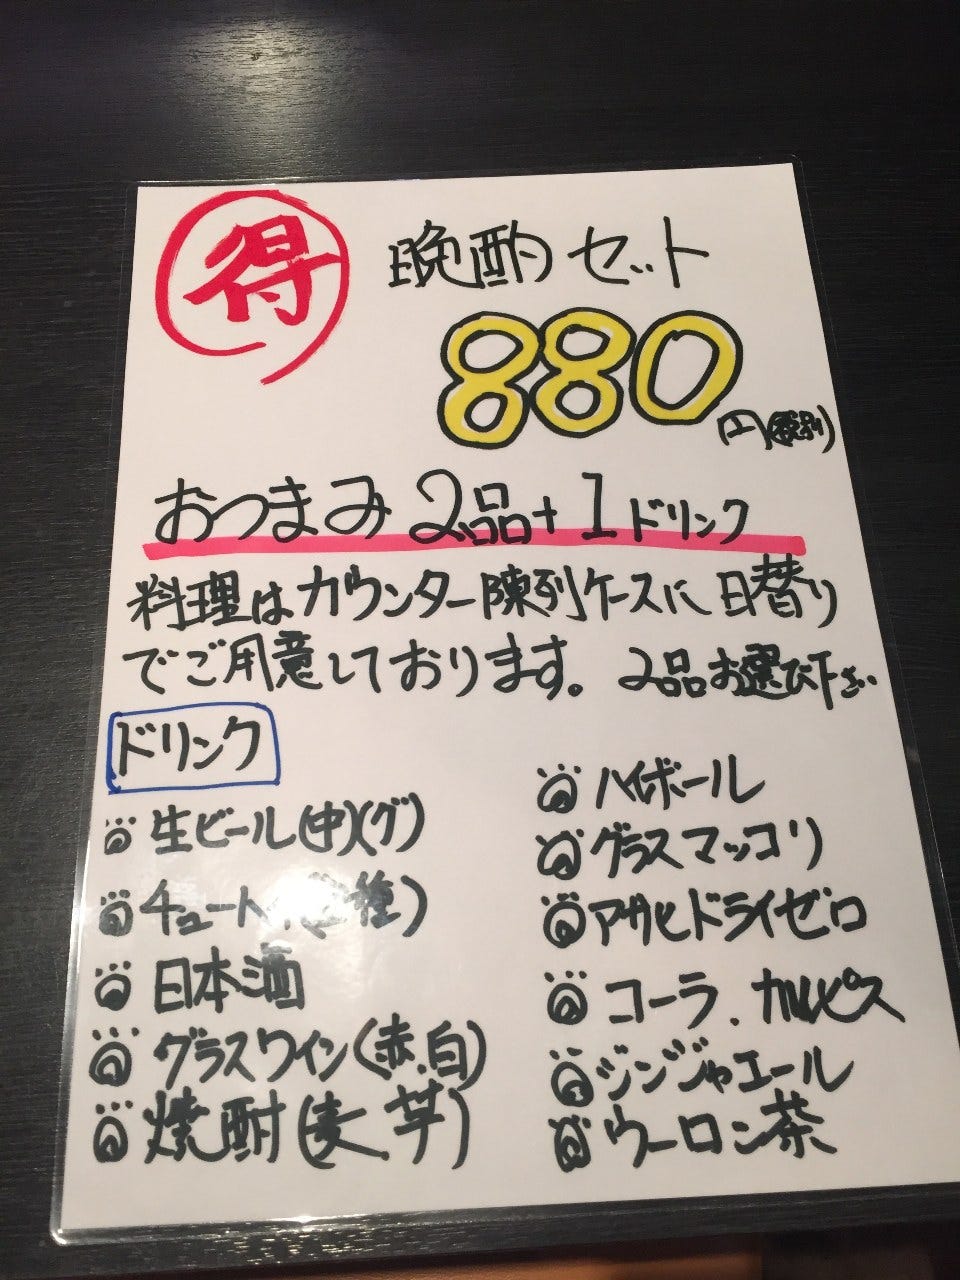 得 晩酌セット
880円(税別)
おつまみ2品+1ドリンク
料理はカウンター陳列ケースに日替り
でご用意しております。2品お選び下さい
ドリンク
生ビール(中)(グ)
チューハイ(各種)
日本酒
グラスワイン(赤.白)
焼酎(麦.芋)
ハイボール
グラスマッコリ
アサヒドライゼロ
コーラ.カルピス
ジンジャエール
ウーロン茶